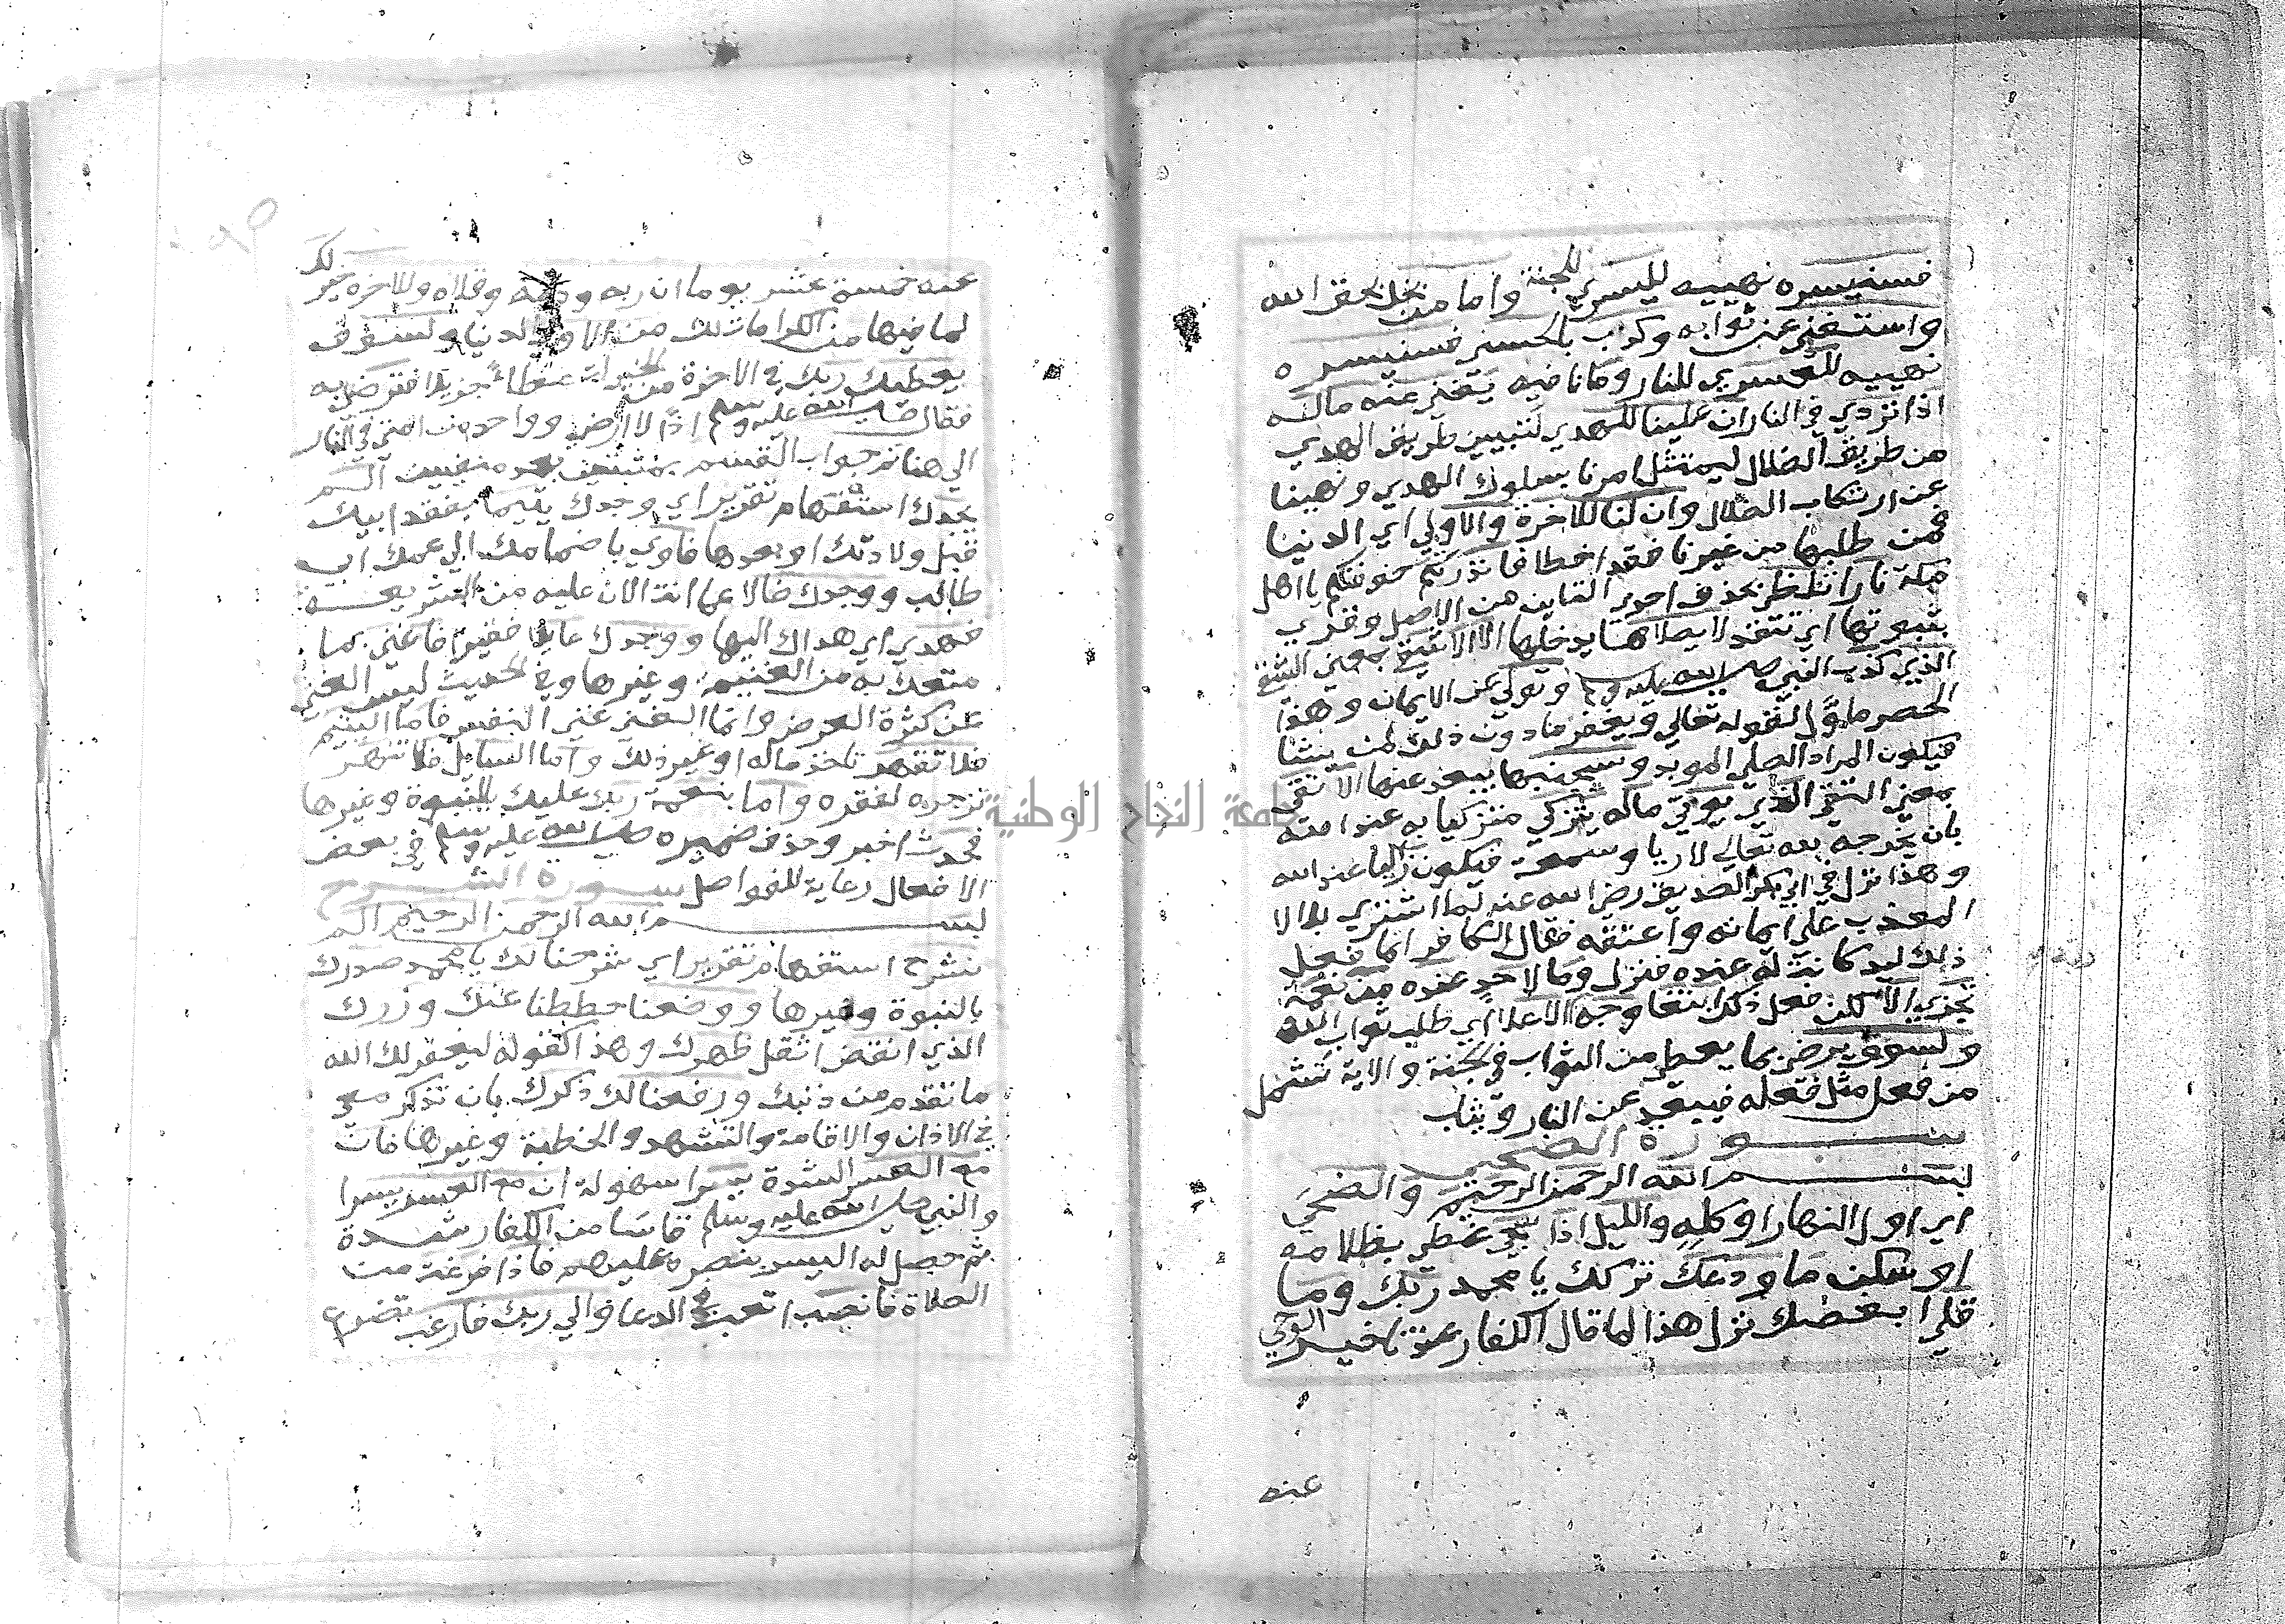 فسنيسره نهييه لليسري للجنة واما من بخل بحق الله
واستغني عن ثوابه وكذب بالحسني فسنيسره
نهييه للعسري للنار وما نافيه يغني عنه ماله
اذا تردي في النار ان علينا للهدي لتبيين طريق الهدي
من طريق الضلال ليمتثل امرنا بسلوك الهدي ونهينا
عن ارتكاب الضلال وان لنا للاخرة والاولي اي الدنيا
فمن طلبها من غيرنا فقد اخطا فانذرتكم خوفتكم يا اهل
مكة نارا تلظي بحذف احدي التاين من الاصل وقري
بثبوتها اي تتقد لا يصلاها يدخلها الا الاشقي بمعني الشقي
الذي كذب النبي صلي الله عليه وسلم وتولي عن الايمان وهذا
الحصر ماول لقوله تعالي ويغفر ما دون ذلك لمن يشا
فيكون المراد الصلي الموبد وسيجنبها يبعد عنها الاتقي
بمعني التقي الذي يوتي ماله يتزكي متزكيا به عند الله
بان يخرجه لله تعالي لا ريا وسمعة فيكون زاكيا عند الله
وهذا نزل في ابي بكر الصديق رضي الله عنه لما اشتري بلالا
المعذب علي ايمانه واعتقه فقال الكافر انما فعل
ذلك ليد كانت له عنده فنزل وما لاحد عنده من نعمة
تجزي الا لكن فعل ذلك ابتغا وجه الاعلا اي طلب ثواب الله
ولسوف يرضي بما يعطي من الثواب في الجنة والاية تشمل
من فعل مثل فعله فيبعد عن النار ويثاب
سورة الضحي
بسم الله الرحمن الرحيم والضحي
اي اول النهار او كله والليل اذا سجي غطي بظلامه
او سكن ما ودعك تركك يا محمد ربك وما
قلي ابغضك نزل هذا لما قال الكفار عند تاخير الوحي
عنه
عنه خمسة عشر يوما ان ربه ودعه وقلاه وللاخره خير لك
لما فيها من الكرامات لك من الاولي الدنيا ولسوف
يعطيك ربك في الاخرة من الخيرات عطاء جزيلا فترضي به
فقال صلي الله عليه وسلم اذا لا ارضي وواحد من امتي في النار
الي هنا تم جواب القسم بمثبتين بعد منفيين الم
يجدك استفهام تقرير اي وجدك يتيما بفقد ابيك
قبل ولادتك او بعدها فاوي باضمامك الي عمك ابي
طالب ووجدك ضالا عما انت الان عليه من الشريعه
فهدي اي هداك اليها ووجدك عايلا فقيرا فاغني بما
متعك به من الغنيمة وغيرها وفي الحديث ليس الغني
عن كثرة العرض وانما الغني غني النفس فاما اليتيم
فلا تقهر تاخذ ماله او غير ذلك واما السايل فلا تنهر
تزجره لفقره واما بنعمة ربك عليك بالنبوة وغيرها
فحدث اخبر وحذف ضميره صلي الله عليه وسلم في بعض
الافعال رعاية للفواصل سورة الشرح
بسم الله الرحمن الرحيم الم
نشرح استفهام تقرير اي شرحنا لك يا محمد صدرك
بالنبوة وغيرها ووضعنا حططنا عنك وزرك
الذي انقض اثقل ظهرك وهذا كقوله ليغفر لك الله
ما تقدم من ذنبك ورفعنا لك ذكرك بان تذكر معي
في الاذان والاقامة والتشهد والخطبة وغيرها فان
مع العسر الشدة يسرا سهولة ان مع العسر يسرا
والنبي صلي الله عليه وسلم قاسا من الكفار شدة
ثم حصل له اليسر بنصره عليهم فاذا فرغت من
الصلاة فانصب اتعب في الدعا والي ربك فارغب تضرع
جامعة النجاح الوطنية